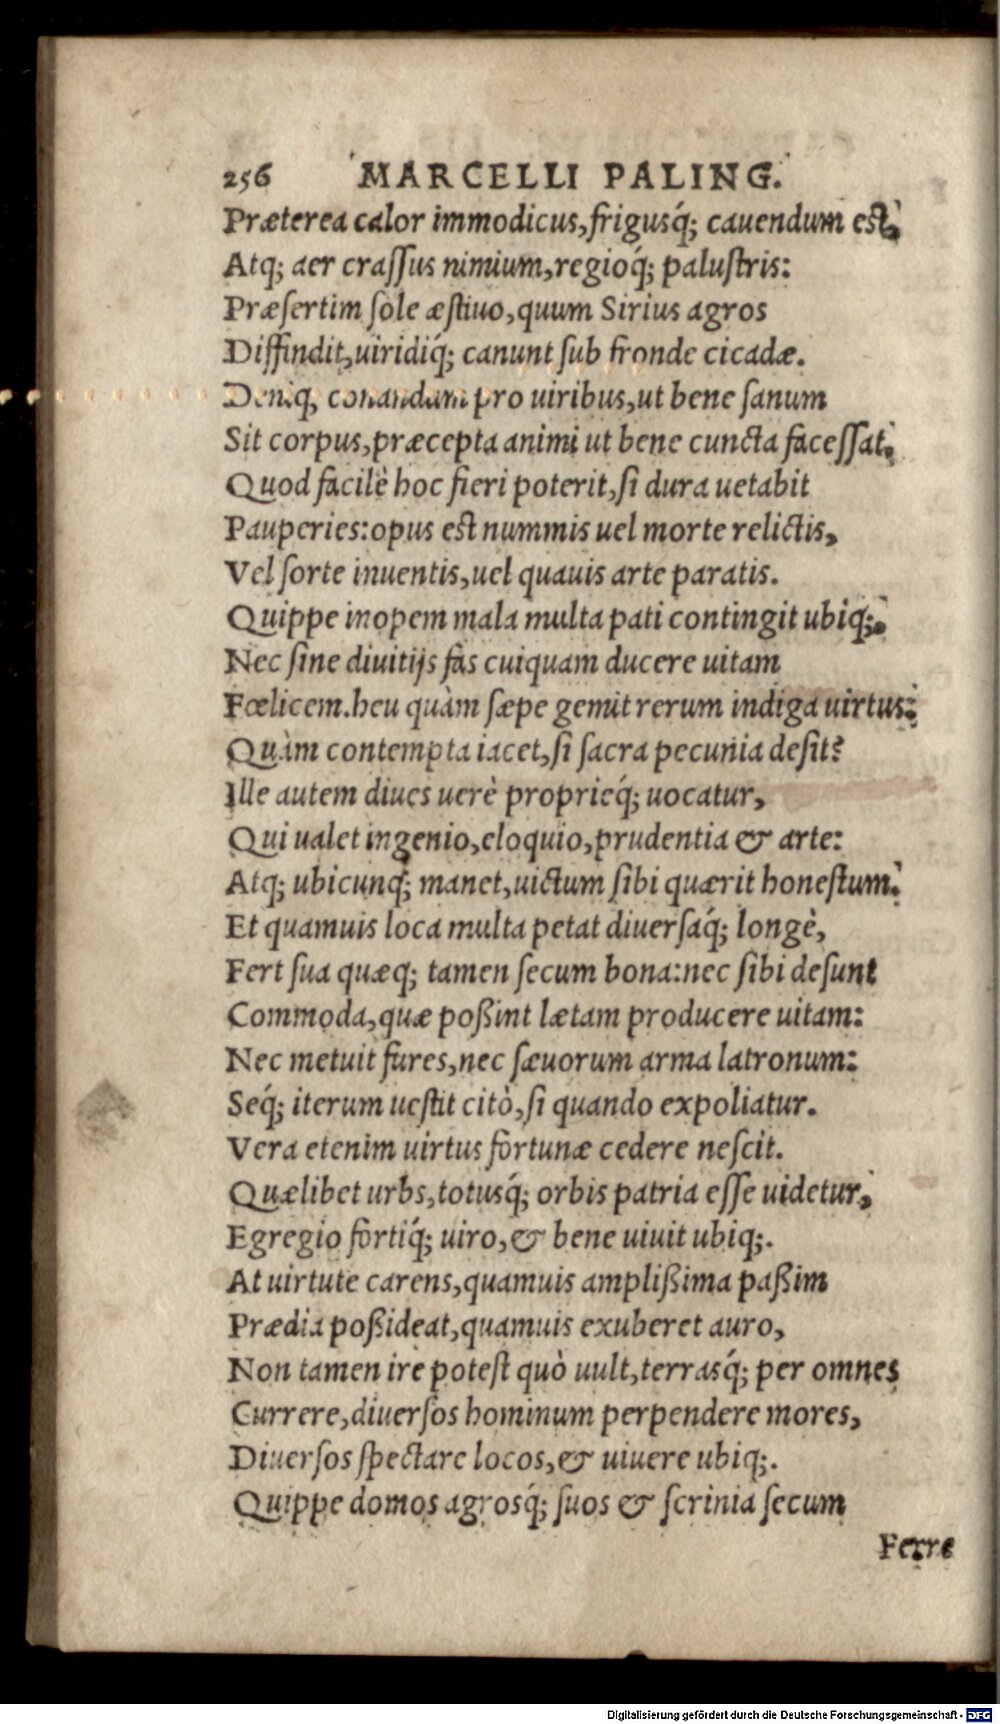 256 MARCELLI PALING.
Præterea calor immodicus, frigusq́; cauendum est,
Atq; aer crassus nimium, regioq́; palustris:
Præsertim sole æstiuo, quum Sirius agros
Diffindit, uiridiq́; canunt sub fronde cicadæ.
Deniq, conandum pro uiribus, ut bene sanum
Sit corpus, præcepta animi ut bene cuncta facessat.
Quod facilè hoc fieri poterit, si dura uetabit
Pauperies: opus est nummis uel morte relictis,
Vel sorte inuentis, uel quauis arte paratis.
Quippe inopem mala multa pati contingit ubiq;.
Nec sine diuitijs fas cuiquam ducere uitam
Fœlicem. heu quàm sæpe gemit rerum indiga uirtus:
Quàm contempta iacet, si sacra pecunia desit?
Ille autem diues uerè proprieq́; uocatur,
Qui ualet ingenio, eloquio, prudentia & arte:
Atq; ubicunq; manet, uictum sibi quærit honestum.
Et quamuis loca multa petat diuersaq́; longè,
Fert sua quæq; tamen secum bona: nec sibi desunt
Commoda, quæ poßint lætam producere uitam:
Nec metuit fures, nec sæuorum arma latronum:
Seq́; iterum uestit citò, si quando expoliatur.
Vera etenim uirtus fortunæ cedere nescit.
Quælibet urbs, totusq́; orbis patria esse uidetur,
Egregio fortiq́; uiro, & bene uiuit ubiq;.
At uirtute carens, quamuis amplißima paßim
Prædia poßideat, quamuis exuberet auro,
Non tamen ire potest quò uult, terrasq́; per omnes
Currere, diuersos hominum perpendere mores,
Diuersos spectare locos, & uiuere ubiq;.
Quippe domos agrosq́; suos & scrinia secum
Ferre
Digitalisierung gefördert durch die Deutsche Forschungsgemeinschaft - DFG